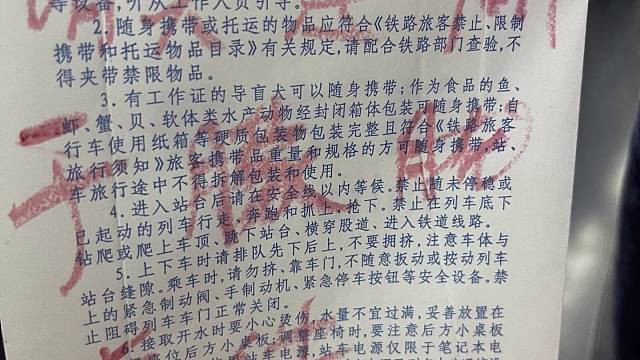 等设备,听从工作人员引导。
2. 随身携带或托运的物品应符合《铁路旅客禁止、限制
携带和托运物品目录》有关规定,请配合铁路部门查验,不
得夹带禁限物品。
3. 有工作证的导盲犬可以随身携带;作为食品的鱼、
虾、蟹、贝、软体类水产动物经封闭箱体包装可随身携带;自
行车使用纸箱等硬质包装物包装完整且符合《铁路旅客
旅行须知》旅客携带品重量和规格的方可随身携带,站、
车旅行途中不得拆解包装和使用。
4. 进入站台后请在安全线以内等候。禁止随未停稳或
已起动的列车行走、奔跑和抓上、抢下。禁止在列车底下
钻爬或爬上车顶、跳下站台、横穿股道、进入铁道线路。
5. 上下车时请排队先下后上,不要拥挤,注意车体与
站台缝隙。乘车时,请勿挤、靠车门,不随意扳动或按动列车
上的紧急制动阀、手制动机、紧急停车按钮等安全设备。禁
止阻碍列车车门正常关闭。
6. 接取开水时要小心烫伤,水量不宜过满,妥善放置在
座位后方小桌板;调整座椅时,要注意后方小桌板
车电源,站车电源仅限于笔记本电